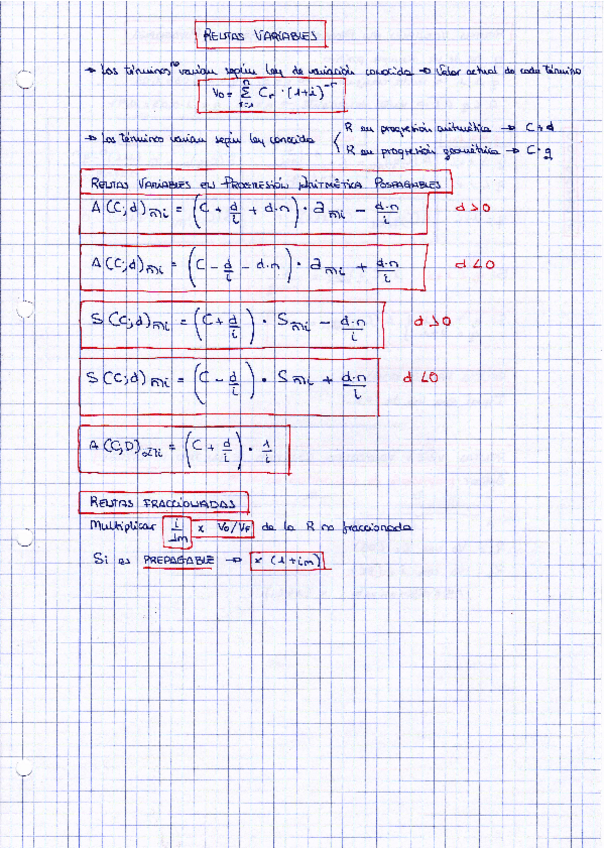 RENTAS VARIABLES
→ Los términos no varían según ley de variación conocida → Valor actual de cada término
V₀ = Σ(r=1 → n) Cᵣ · (1+i)⁻ʳ
→ Los términos varían según ley conocida { R en progresión aritmética → C+d
R en progresión geométrica → C·q
RENTAS VARIABLES EN PROGRESIÓN ARITMÉTICA POSPAGABLES
A(C;d)n̅|i = (C + d/i + d·n) · an̅|i − d·n/i d>0
A(C;d)n̅|i = (C − d/i − d·n) · an̅|i + d·n/i d<0
S(C;d)n̅|i = (C + d/i) · Sn̅|i − d·n/i d>0
S(C;d)n̅|i = (C − d/i) · Sn̅|i + d·n/i d<0
A(C;D)∞|i = (C + d/i) · 1/i
RENTAS FRACCIONADAS
Multiplicar i/Jm x V₀/VF de la R no fraccionada
Si es PREPAGABLE → x (1+im)